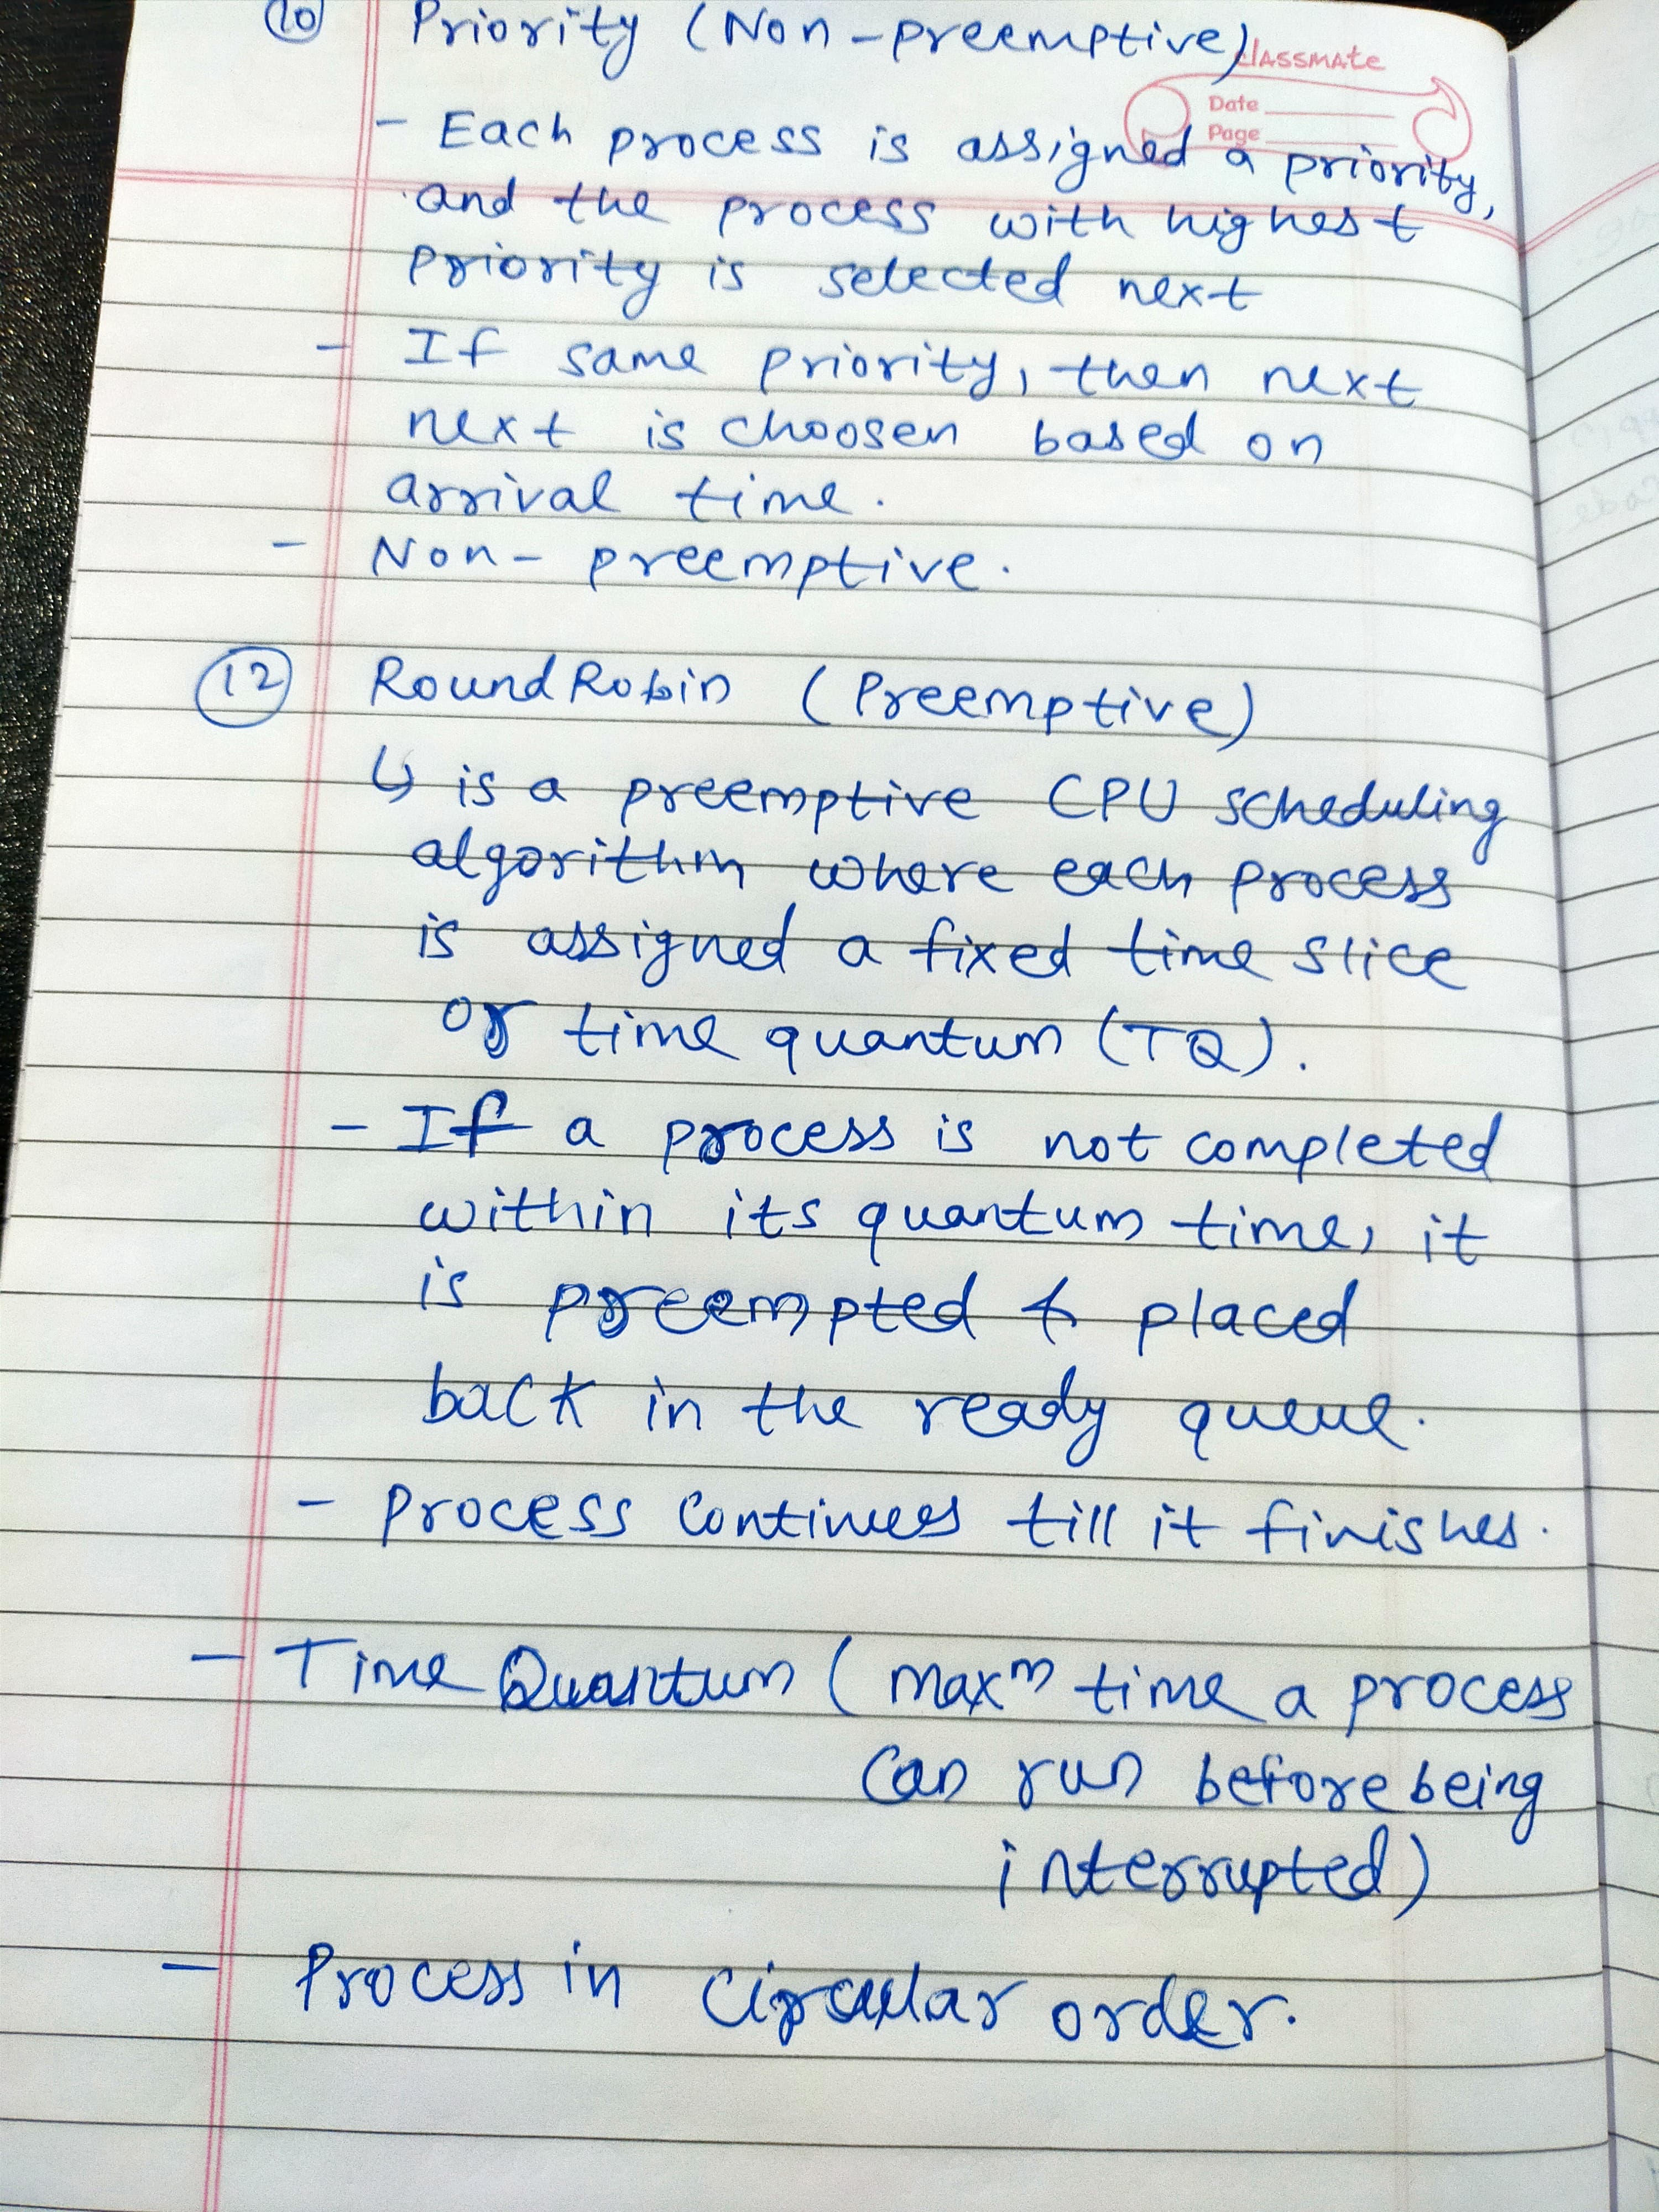 10 Priority (Non-preemptive)
classmate
Date
Page
- Each process is assigned a priority,
and the process with highest
priority is selected next
- If same priority, then next
next is choosen based on
arrival time.
- Non-preemptive.
12 Round Robin (Preemptive)
↳ is a preemptive CPU scheduling
algorithm where each process
is assigned a fixed time slice
or time quantum (TQ).
- If a process is not completed
within its quantum time, it
is preempted & placed
back in the ready queue.
- Process continues till it finishes.
- Time Quantum (maxᵐ time a process
can run before being
interrupted)
- Process in circular order.